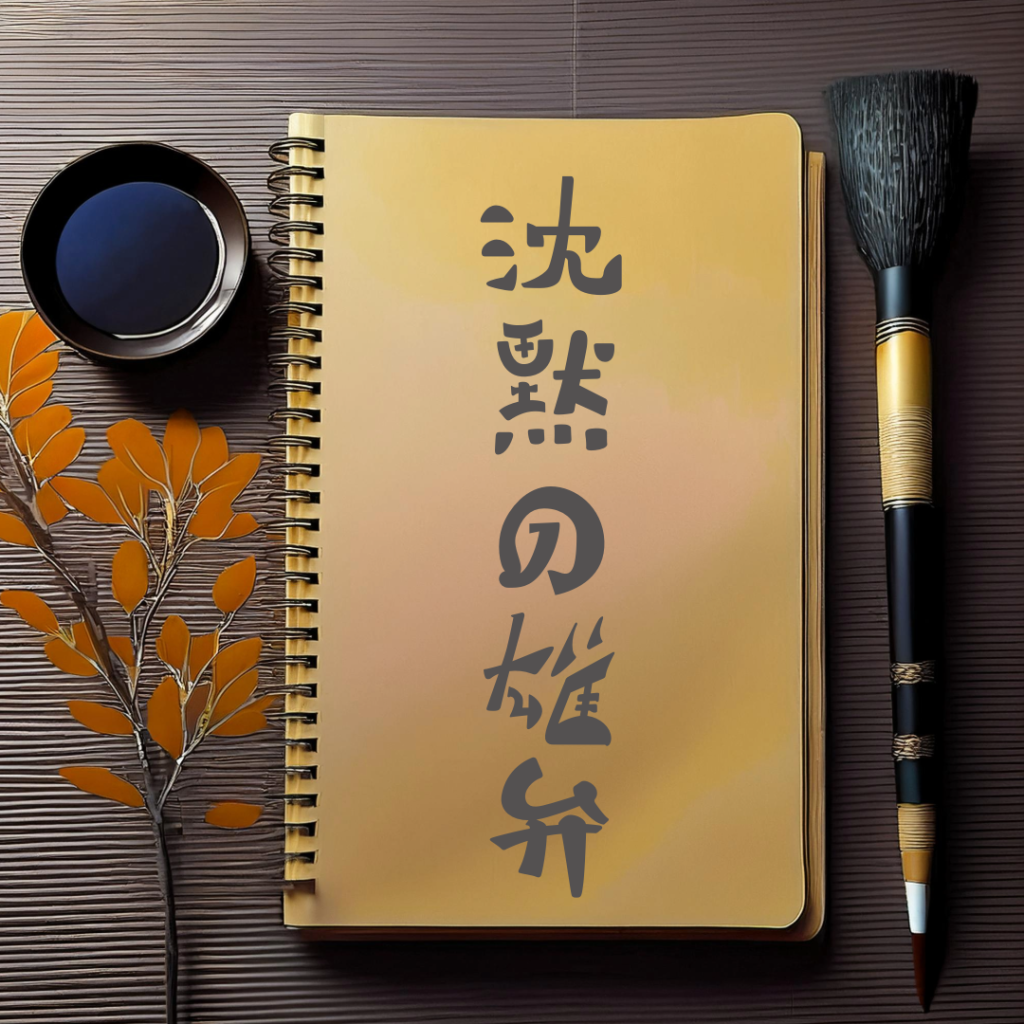 沈黙の雄弁